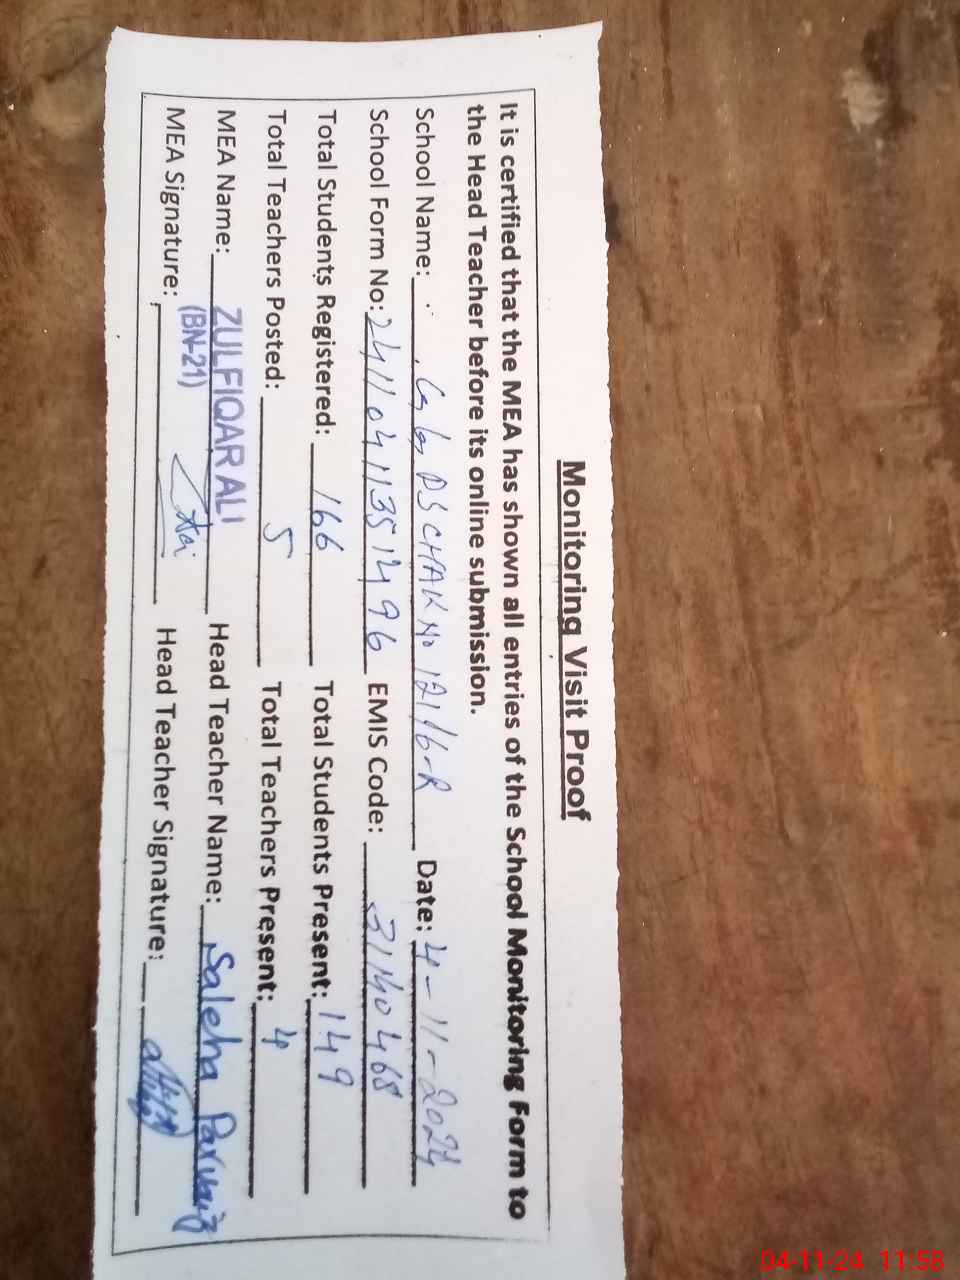 Monitoring Visit Proof
It is certified that the MEA has shown all entries of the School Monitoring Form to
the Head Teacher before its online submission.
School Name: PS CHAK No 121/6-R Date: 4-11-2024
School Form No: 24110411351496 EMIS Code: 31140468
Total Students Registered: 166 Total Students Present: 149
Total Teachers Posted: 5 Total Teachers Present: 4
MEA Name: ZULFIQAR ALI Head Teacher Name: Saleha Parvaiz
(BN-21)
MEA Signature: Head Teacher Signature:
04-11-24 11:58